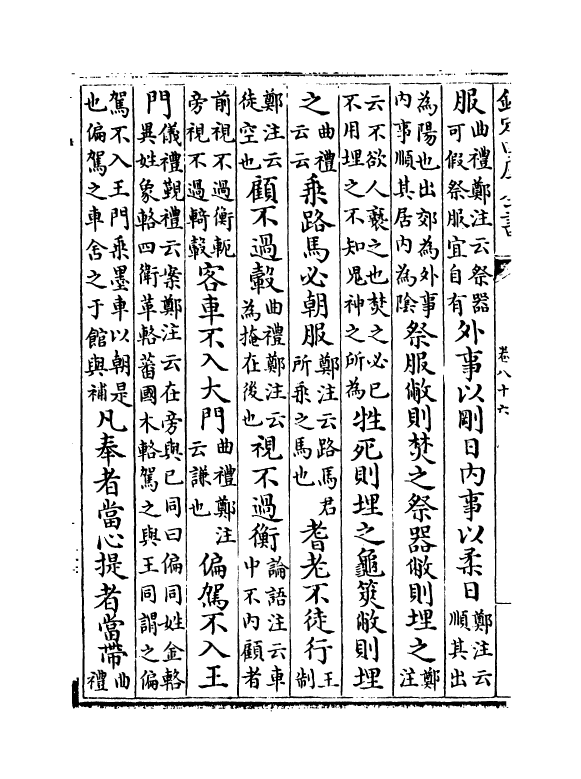 欽定四庫全書
卷八十六
服曲禮鄭注云祭器可假祭服宜自有外事以剛日内事以柔日鄭注云順其出
為陽也出郊為外事内事順其居内為陰祭服敝則焚之祭器敝則埋之鄭注
云不欲人褻之也焚之必已不用埋之不知鬼神之所為牲死則埋之龜筴敝則埋
之曲禮云云乘路馬必朝服鄭注云路馬君所乘之馬也耆老不徒行王制
鄭注云徒空也顧不過轂曲禮鄭注云為掩在後也視不過衡論語注云車中不内顧者
前視不過衡軛旁視不過輢轂客車不入大門曲禮鄭注云謙也偏駕不入王
門儀禮覲禮云案鄭注云在旁與已同曰偏同姓金輅異姓象輅四衛革輅蕃國木輅駕之與王同謂之偏
駕不入王門乘墨車以朝是也偏駕之車舍之于館與補凡奉者當心提者當帶曲禮